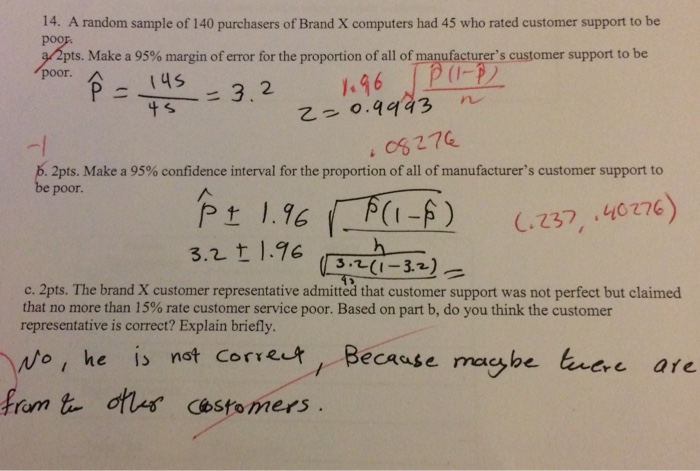 14. A random sample of 140 purchasers of Brand X computers had 45 who rated customer support to be
poor.
a. 2pts. Make a 95% margin of error for the proportion of all of manufacturer's customer support to be
poor.
p̂ = 145/45 = 3.2
1.96 √p̂(1-p̂)/n
z = 0.9993
.08276
-1
b. 2pts. Make a 95% confidence interval for the proportion of all of manufacturer's customer support to
be poor.
p̂ ± 1.96 √p̂(1-p̂)/n
(.237, .40276)
3.2 ± 1.96 √3.2(1-3.2)/45 =
c. 2pts. The brand X customer representative admitted that customer support was not perfect but claimed
that no more than 15% rate customer service poor. Based on part b, do you think the customer
representative is correct? Explain briefly.
No, he is not correct, Because maybe there are
from other costomers.